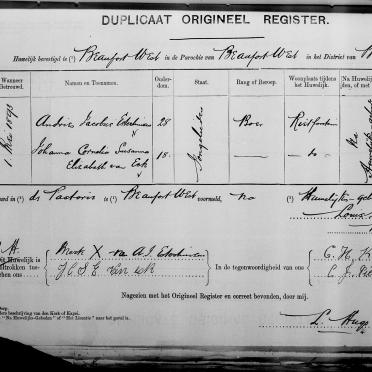 DUPLICAAT ORIGINEEL REGISTER.
Huwelijk bevestigd te (¹) Beaufort West in de Parochie van Beaufort West in het District van
Wanneer Getrouwd. Namen en Toenamen. Ouderdom. Staat. Rang of Beroep. Woonplaats tijdens het Huwelijk. Na Huwelijks-Geboden, of met
1 Mei 1893 Andries Jacobus Esterhuizen 28 Boer Rietfontein
Johanna Cornelia Susanna
Elizabeth van Eck 18 do
in (²) de Pastorie te (¹) Beaufort West voormeld, na (³) Huwelijks-Ge
Dit Huwelijk is voltrokken tusschen ons
Merk X van A J Esterhuizen
J C S E van Eck
In de tegenwoordigheid van ons
C. H.
C. J.
Nagezien met het Origineel Register en correct bevonden, door mij.
Dorp.
andere beschrijving van den Kerk of Kapel.
"Na Huwelijks-Geboden" of "Met Licentie" naar het geval is.
L. Hugo